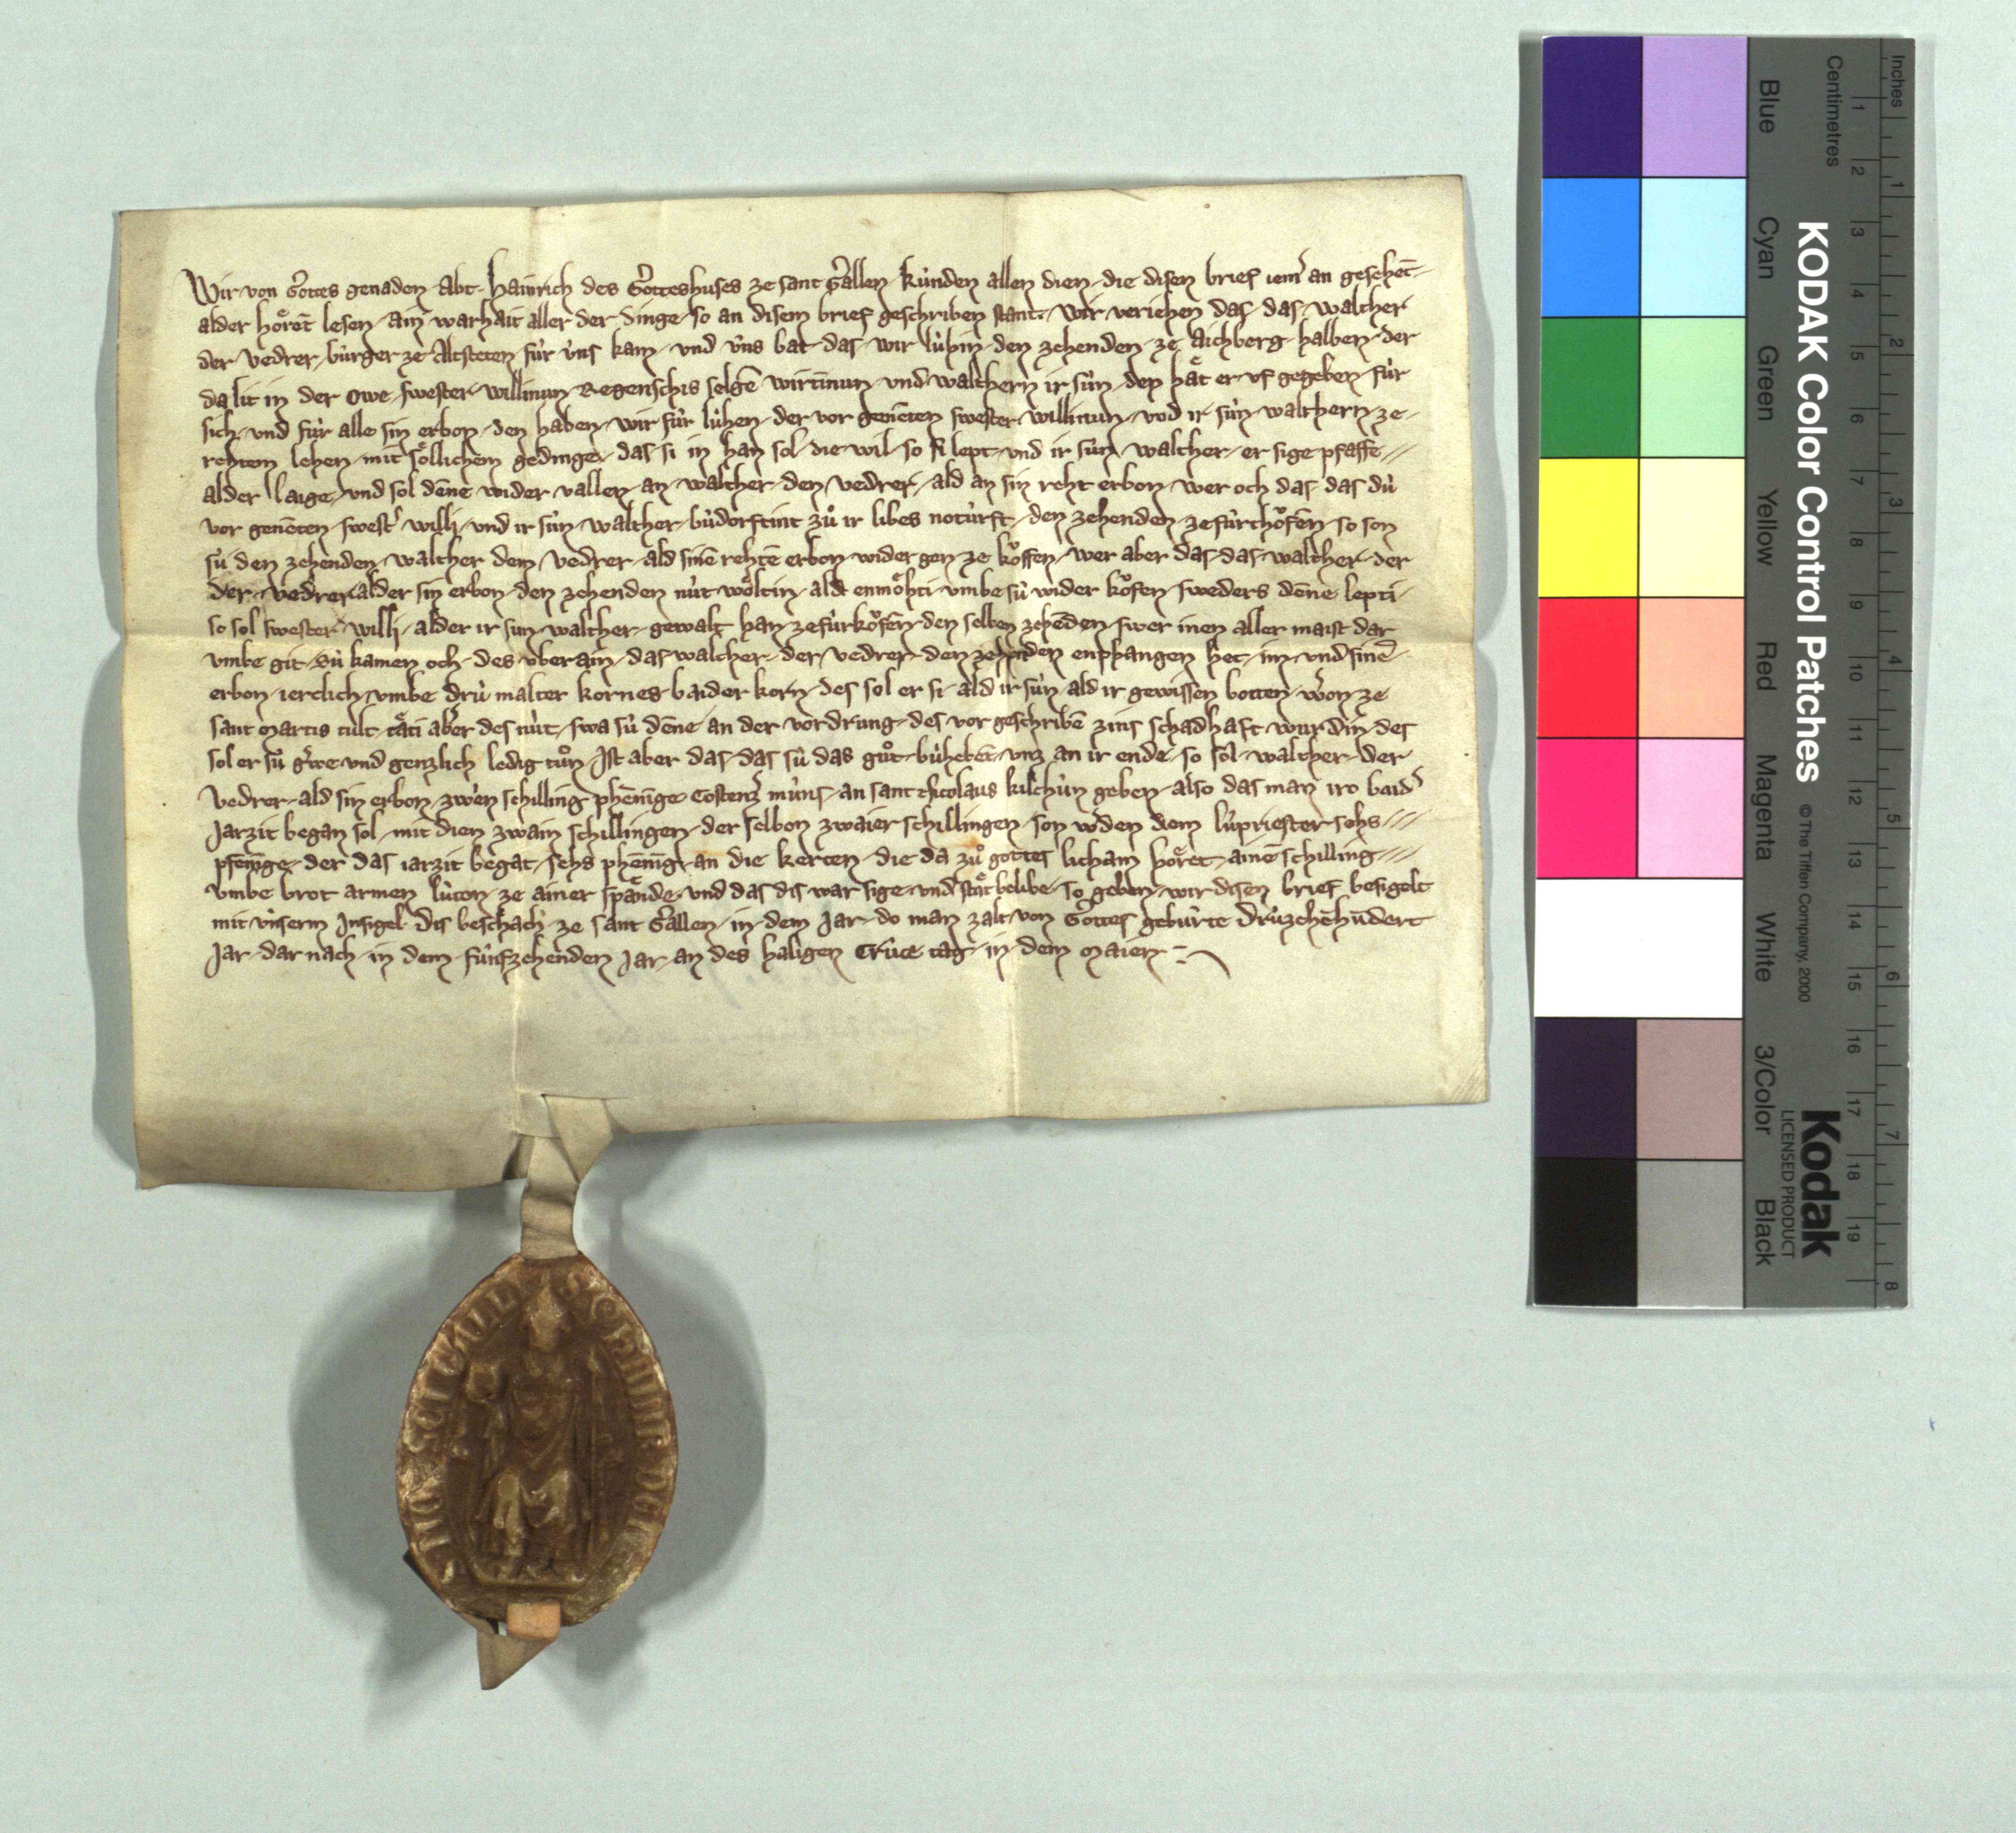 Wir von Gottes genaden Abt Hainrich des Gotteshuses ze sant Gallen kúnden allen dien die disen brief iem̄ an gesehēt
alder hoͤrēt lesen ain warhait aller der dinge so an disem brief geschriben stant. Wir veriehen das das Walther
der Vedrer burger ze Altsteten fúr úns kam und úns bat das wir lúhin den zehenden ze Aichberg halben der
da lit in der Owe swester Willinun Regenschis selgē wirtinun und Walthern ir sun den hat er uf gegeben fúr
sich und fúr alle sin erbon den haben wir fúr lúhen der vor genēten swester Willinun und ir sun Walthern ze
rehtem lehen mit soͤllichem gedinge das si in han sol die wil so si lept und ir sun Walther er sige pfaffe
alder laige und sol dēne wider vallen an Walther den Vedrer ald an sin reht erbon wer och das das dú
vor genēten swest̄ Willi und ir sun Walther búdorftint zuͦ ir libes noturft den zehenden ze fúrchoͧfēn so son
sú den zehenden Walther dem Vedrer ald sinē rehtē erbon wider gen ze koͧffen wer aber das das Walther der
der Vedrer alder sin erbon den zehenden nút woͤltin ald enmoͤhti umbe sú wider koͧfen sweders dēne lepti
so sol swester Willi alder ir sun Walther gewalt han ze fúrkoͧfēn den selben zehēden swer inen aller maist dar
umbe git sú kamen och des uberain das Walther der Vedrer den zehenden enphangen het im und sinē
erbon ierclich umbe drú malter kornes baider korn des sol er si ald ir sun ald ir gewissen botten w̄on ze
sant Martis tult taͤti aber des nút swa sú dēne an der vordrung des vor geschribē zins schadhaft wurdin des
sol er sú ḡwe und genzlich ledig tuͦn Ist aber das das sú das guͦt búhebēt unz an ir ende so sol Walther der
Vedrer ald sin erbon zwen schilling phēnige Costenz̄ múns an sant Nicolaus kilchun geben also das man iro baid̄
Jarzit began sol mit dien zwain schillingen der selbon zwaier schillingen son w̄den dem lúpriester sehs
pfēnige der das iarzit begat sehs phēnig an die kerzen die da zuͦ gottes licham hoͤret ainē schilling
umbe brot armen lúton ze ainer spaͤnde und das dis war sige und staͤt belibe so geben wir disen brief besigelt
mit únserm Insigel dis beschach ze sant Gallen in dem Jar do man zalt von Gottes gebúrte drúzehēhūdert
Jar dar nach in dem fúnfzehenden Jar an des haligen Crúce tag in dem Maien
KODAK Color Control Patches © The Tiffen Company, 2000
Kodak
LICENSED PRODUCT
Inches 1 2 3 4 5 6 7 8
Centimetres 1 2 3 4 5 6 7 8 9 10 11 12 13 14 15 16 17 18 19
Blue Cyan Green Yellow Red Magenta White 3/Color Black